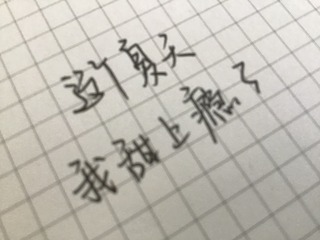 这个夏天
我甜上瘾了